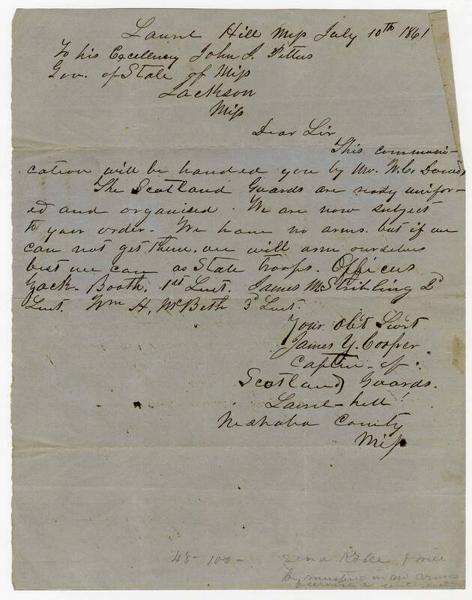 Laurel Hill Miss July 10th 1861
To his Excellency John J. Pettus
Gov. of State of Miss
Jackson
Miss
Dear Sir
This communi-
cation will be handed you by Mr. W. C.
The Scotland Guards are now unifor-
ed and organised. We are now subject
to your order. We have no arms. but if we
can not get them, we will arm ourselves
best we can as State troops. Officers
Zack. Booth. 1st Lieut. James M. Stribling 2d
Lieut. Wm H. McBeth 3d Lieut.
Your Obt Servt
James Y. Cooper
Captn of
Scotland Guards.
Laurel-hill
Neshoba County
Miss
48- 100-
by mustering in as arms